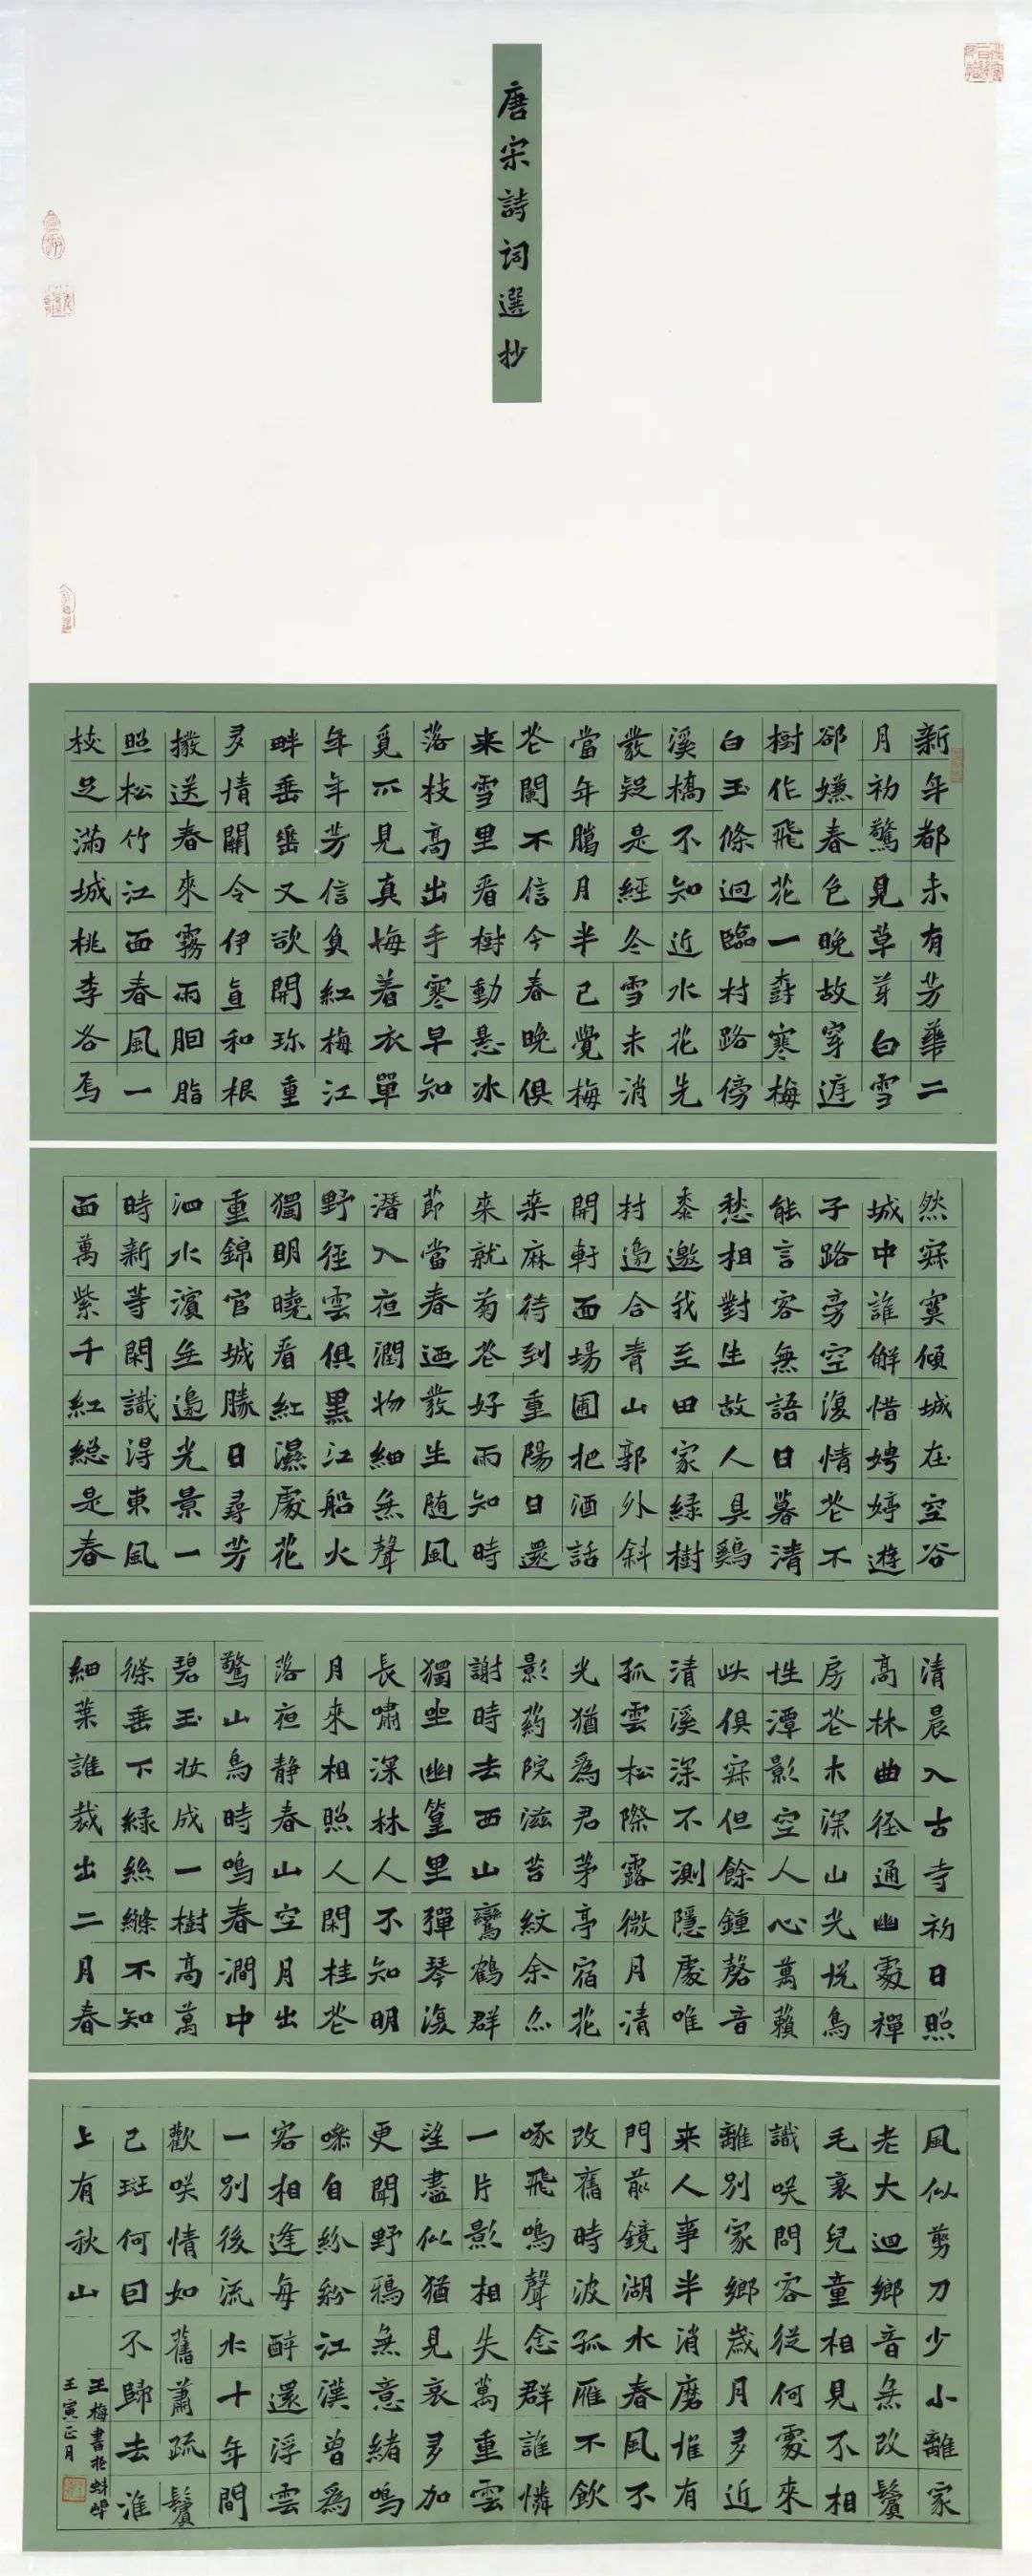 唐宋詩詞選抄
新年都未有芳華二
月初驚見草芽白雪
卻嫌春色晚故穿庭
樹作飛花一樹寒梅
白玉條迥臨村路傍
溪橋不知近水花先
發疑是經冬雪未消
當年騰月半已覺梅
花闌不信今春晚俱
来雪里看樹動懸冰
落枝高出手寒早知
覓不見真梅着衣單
年年芳信負紅梅江
畔垂垂又欲開珎重
多情關令伊直和根
撥送春來霧雨胭脂
照松竹江面春風一
枝足滿城桃李各焉
然寂寞傾城在空谷
城中誰解惜娉婷遊
子路旁空復情花不
能言客無語日暮清
愁相對生故人具鷄
黍邀我至田家緑樹
村邊合青山郭外斜
開軒面場圃把酒話
桒麻待到重陽日還
来就菊花好雨知時
節當春迺發生随風
潛入夜潤物細無聲
野徑雲俱黑江船火
獨明曉看紅濕處花
重錦官城勝日尋芳
泗水濱無邊光景一
時新等閑識得東風
面萬紫千紅総是春
清晨入古寺初日照
高林曲径通幽處禪
房花木深山光悦鳥
性潭影空人心萬籟
此俱寂但餘鍾磬音
清溪深不測隱處唯
孤雲松際露微月清
光猶爲君茅亭宿花
影葯院滋苔紋余亦
謝時去西山鸞鶴群
獨坐幽篁里彈琴復
長嘯深林人不知明
月來相照人閑桂花
落夜静春山空月出
驚山鳥時鳴春澗中
碧玉妝成一樹高萬
條垂下緑絲絛不知
細葉誰裁出二月春
風似剪刀少小離家
老大迴鄉音無改鬢
毛衰兒童相見不相
識咲問客從何處來
離別家鄉歲月多近
来人事半消磨惟有
門前鏡湖水春風不
改舊時波孤雁不飲
啄飛鳴聲念群誰憐
一片影相失萬重雲
望盡似猶見哀多如
更聞野鴉無意緒鳴
噪自紛紛江漢曾爲
客相逢每醉還浮雲
一別後流水十年間
歡咲情如舊蕭疏鬢
已斑何因不歸去淮
上有秋山
王梅書於蚌埠
壬寅正月